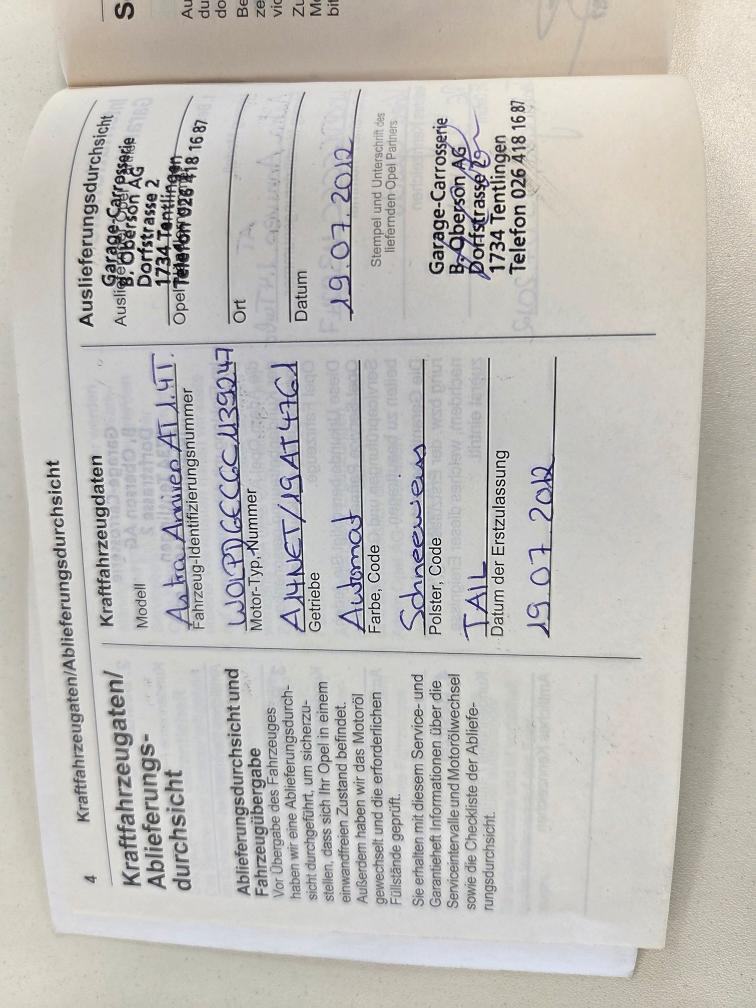 4
Kraftfahrzeugaten/Ablieferungsdurchsicht
Kraftfahrzeugaten/
Ablieferungs-
durchsicht
Ablieferungsdurchsicht und
Fahrzeugübergabe
Vor Übergabe des Fahrzeuges
haben wir eine Ablieferungsdurch-
sicht durchgeführt, um sicherzu-
stellen, dass sich Ihr Opel in einem
einwandfreien Zustand befindet.
Außerdem haben wir das Motoröl
gewechselt und die erforderlichen
Füllstände geprüft.
Sie erhalten mit diesem Service- und
Garantieheft Informationen über die
Serviceintervalle und Motorölwechsel
sowie die Checkliste der Abliefe-
rungsdurchsicht.
Kraftfahrzeugdaten
Modell
Astra AT 1.4T.
Fahrzeug-Identifizierungsnummer
Motor-Typ, Nummer
A14NET/19AT4761
Getriebe
Automat
Farbe, Code
Schneeweiss
Polster, Code
TAIL
Datum der Erstzulassung
19.07.2012
Auslieferungsdurchsicht
Garage-Carrosserie
B. Oberson AG
Dorfstrasse 2
1734 Tentlingen
Opel
Telefon 026 418 16 87
Ort
Datum
19.07.2012
Stempel und Unterschrift des
liefernden Opel Partners
Garage-Carrosserie
B. Oberson AG
Dorfstrasse 2
1734 Tentlingen
Telefon 026 418 16 87